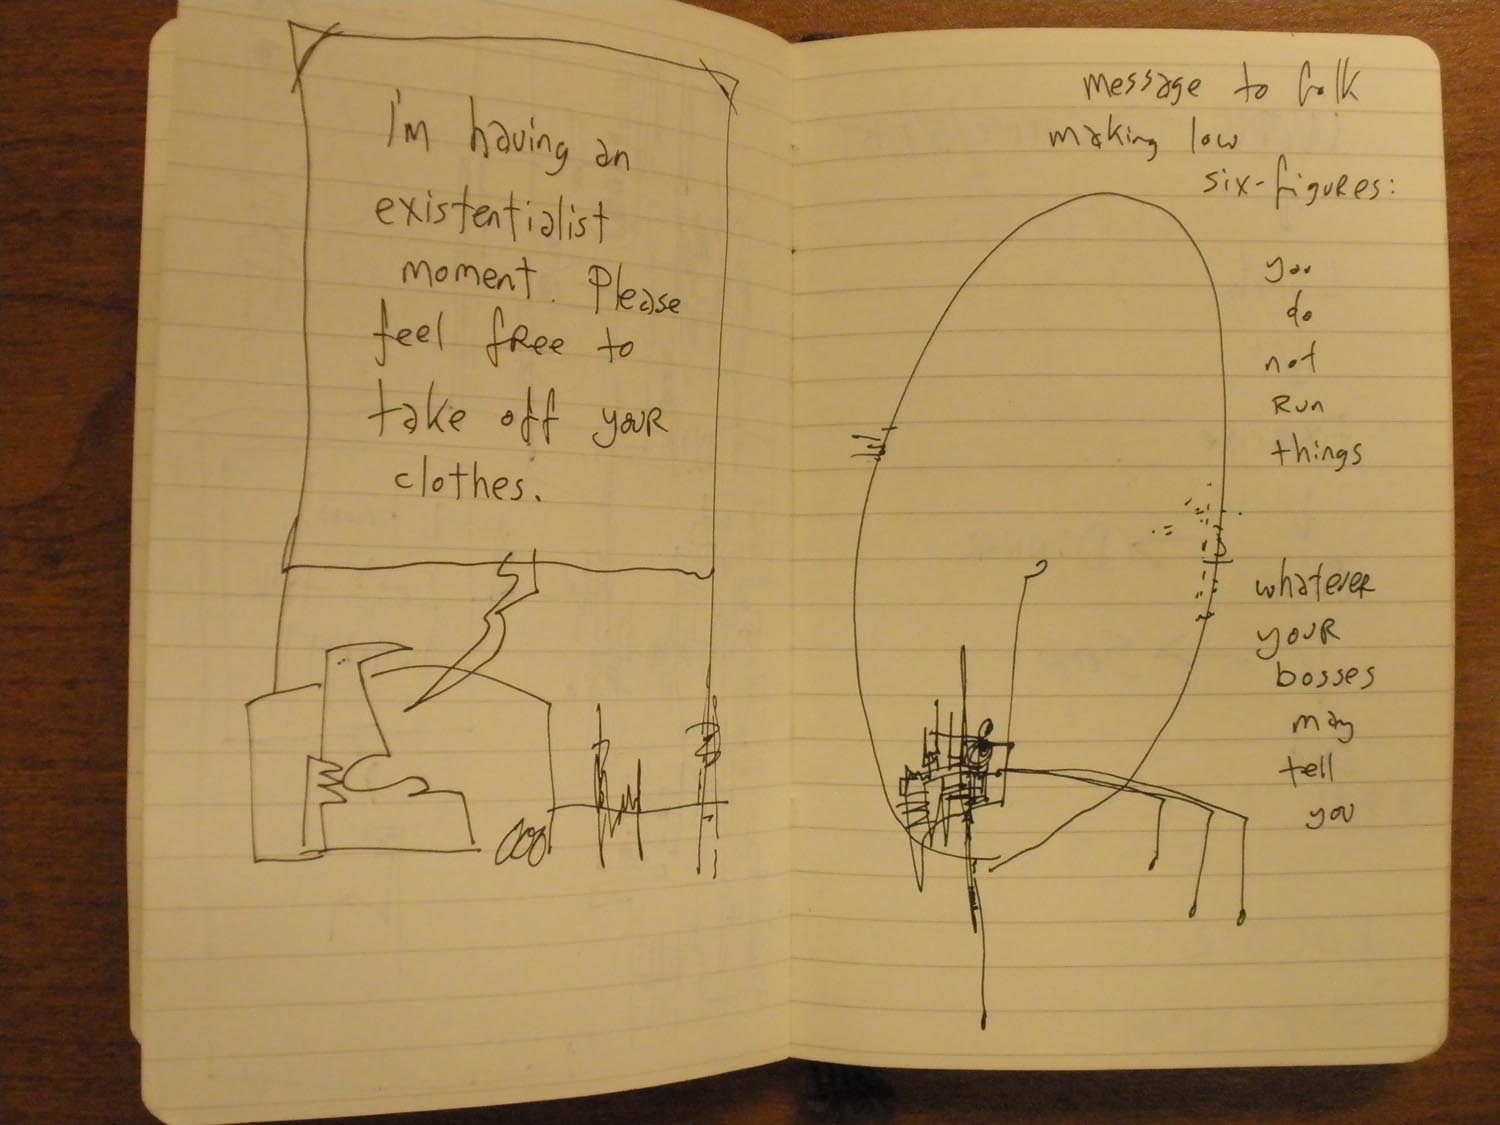 I'm having an
existentialist
moment. Please
feel free to
take off your
clothes.
message to folk
making low
six-figures:
you
do
not
Run
things
whatever
your
bosses
may
tell
you